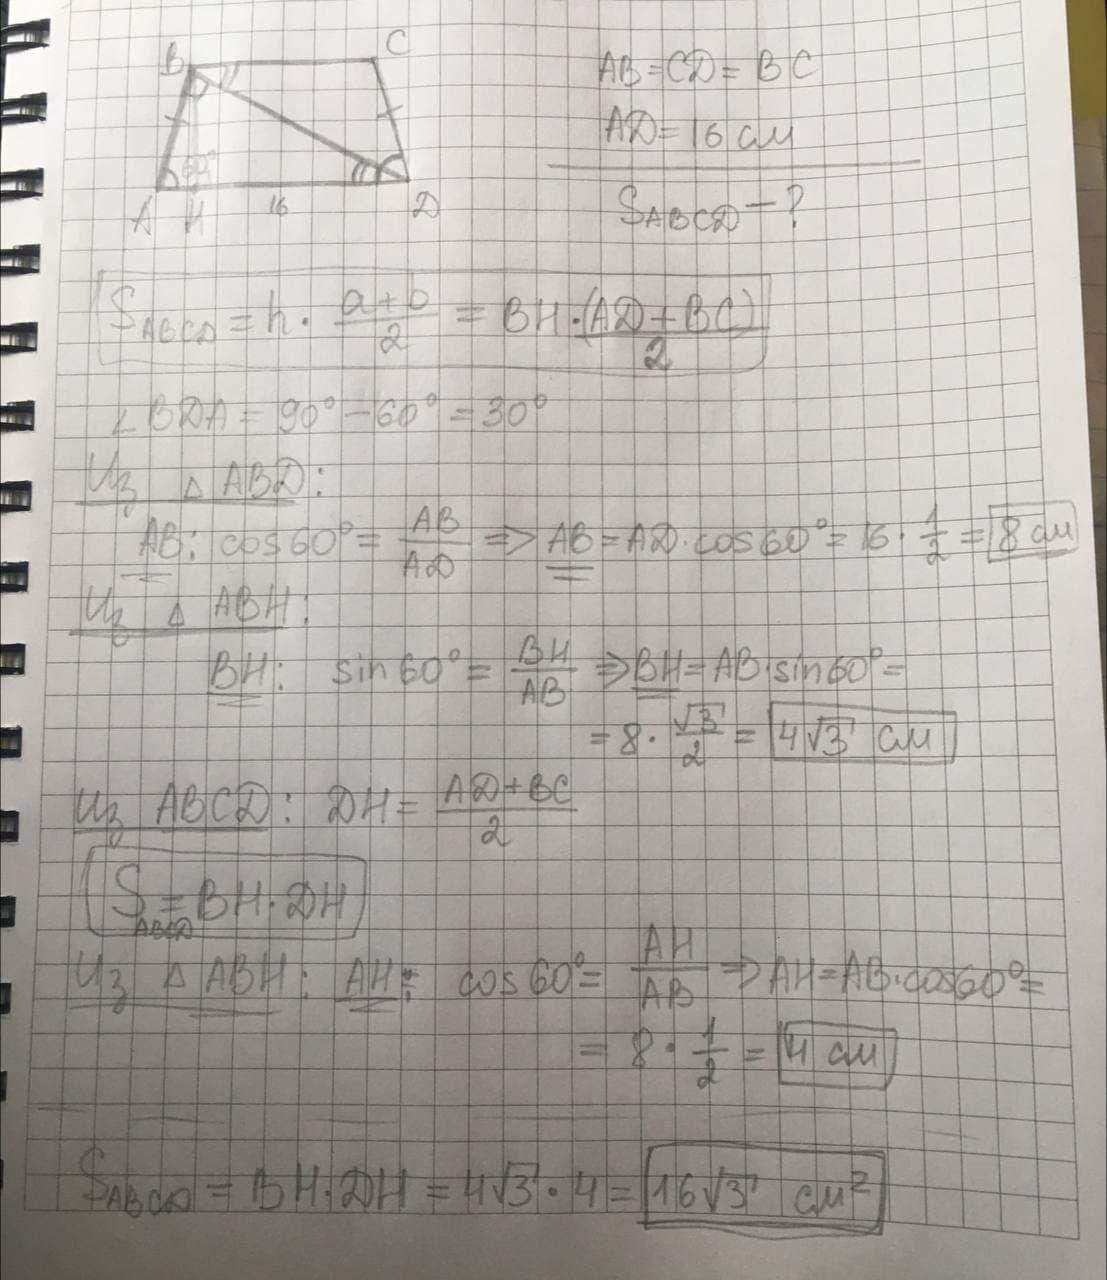 B C
AB = CD = BC
AD = 16 см
60°
A H 16 D
S_ABCD - ?
S_ABCD = h · (a+b)/2 = BH · (AD+BC)/2
∠BDA = 90° - 60° = 30°
Из △ ABD:
AB: cos60° = AB/AD => AB = AD · cos60° = 16 · 1/2 = 8 см
Из △ ABH:
BH: sin60° = BH/AB => BH = AB · sin60° =
= 8 · √3/2 = 4√3 см
Из ABCD: DH = (AD+BC)/2
S_ABCD = BH · DH
Из △ ABH: AH: cos60° = AH/AB => AH = AB · cos60° =
= 8 · 1/2 = 4 см
S_ABCD = BH · DH = 4√3 · 4 = 16√3 см²